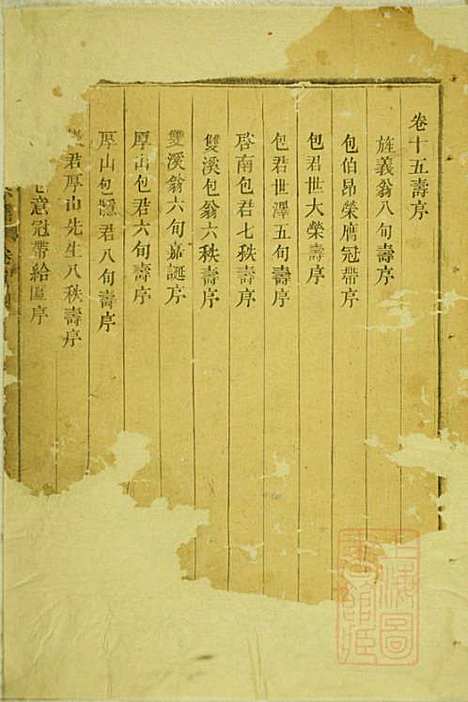 卷十五壽序
旌義翁八旬壽序
包伯昂榮膺冠帶序
包君世大榮壽序
包君世澤五旬壽序
啓南包君七秩壽序
雙溪包翁六秩壽序
雙溪翁六旬嘉誕序
厚山包君六旬壽序
厚山包隱君八旬壽序
君厚山先生八秩壽序
意冠帶給匾序
上海圖書館藏